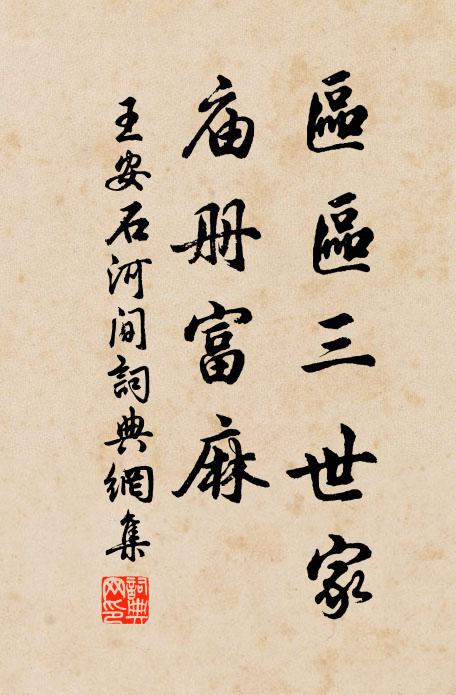 區區三世家
庙册富麻
王安石河间詞典網集
詞典网印